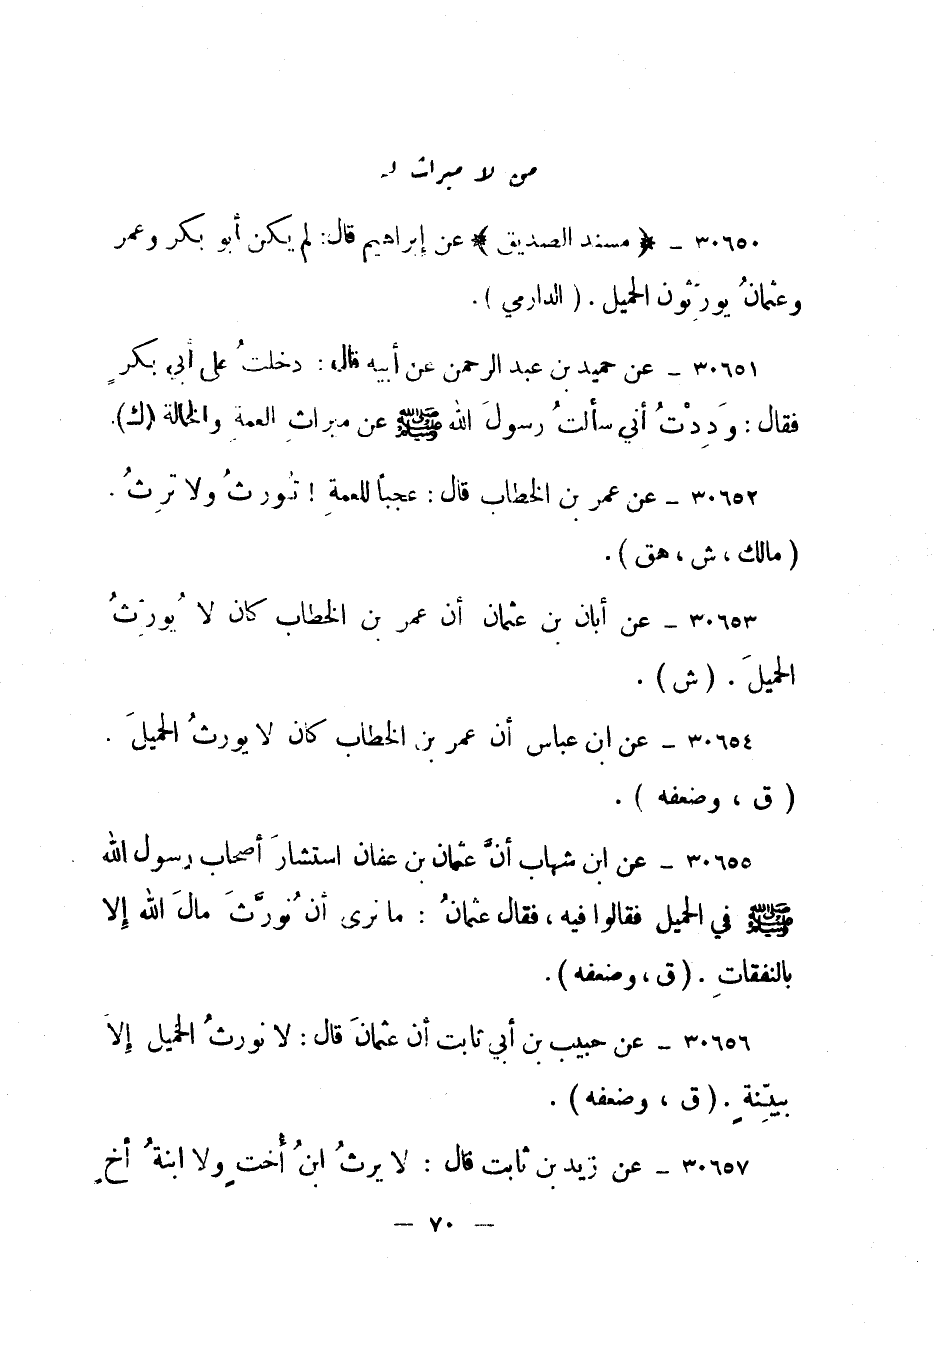 من لا ميراث له
٣٠٦٥٠ ـ ﴿ مسند الصديق ﴾ عن إبراهيم قال: لم يكن أبو بكر وعمر
وعثمانُ يورِّثون الحميل . ( الدارمي ) .
٣٠٦٥١ ـ عن حميد بن عبد الرحمن عن أبيه قال : دخلتُ على أبي بكرٍ
فقال : وَدِدْتُ أني سألتُ رسولَ الله ﷺ عن ميراثِ العمةِ والخالة (ك).
٣٠٦٥٢ ـ عن عمر بن الخطاب قال : عجباً للعمةِ ! تُورثُ ولا ترثُ .
( مالك ، ش ، هق ) .
٣٠٦٥٣ ـ عن أبان بن عثمان أن عمر بن الخطاب كان لا يُورِّثُ
الحميلَ . ( ش ) .
٣٠٦٥٤ ـ عن ابن عباس أن عمر بن الخطاب كان لا يورثُ الحميلَ .
( ق ، وضعفه ) .
٣٠٦٥٥ ـ عن ابن شهاب أنَّ عثمان بن عفان استشارَ أصحاب رسول الله
ﷺ في الحميل فقالوا فيه ، فقال عثمانُ : ما نرى أن نُورِّثَ مالَ الله إلا
بالنفقاتِ . ( ق ، وضعفه ) .
٣٠٦٥٦ ـ عن حبيب بن أبي ثابت أن عثمانَ قال : لا نورثُ الحميل إلا
ببيِّنةٍ . ( ق ، وضعفه ) .
٣٠٦٥٧ ـ عن زيد بن ثابت قال : لا يرثُ ابنُ أُختٍ ولا ابنةُ أخٍ
— ٧٠ —